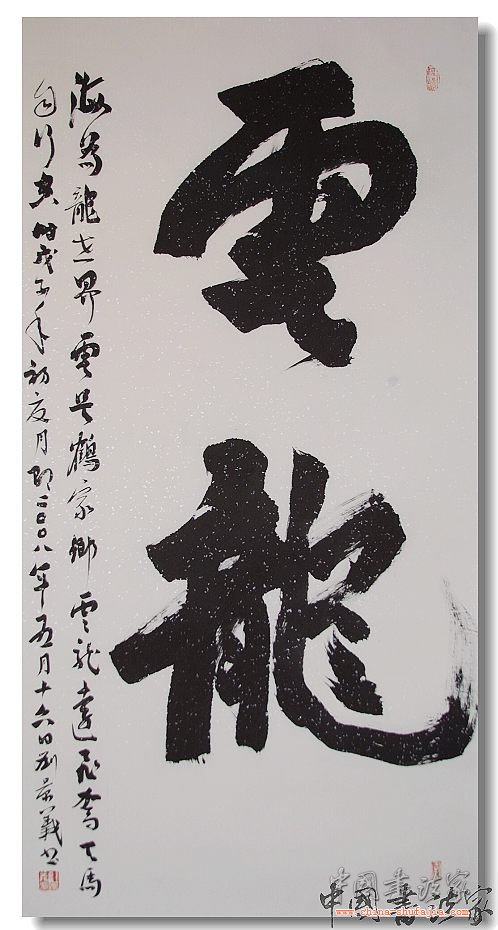 雲龍
海為龍世界雲是鶴家鄉雲龍遠飛駕天馬
自行空時戊子年初夏月即二〇〇八年五月十六日劉景義書
中國書法家
www.china-shufajia.com